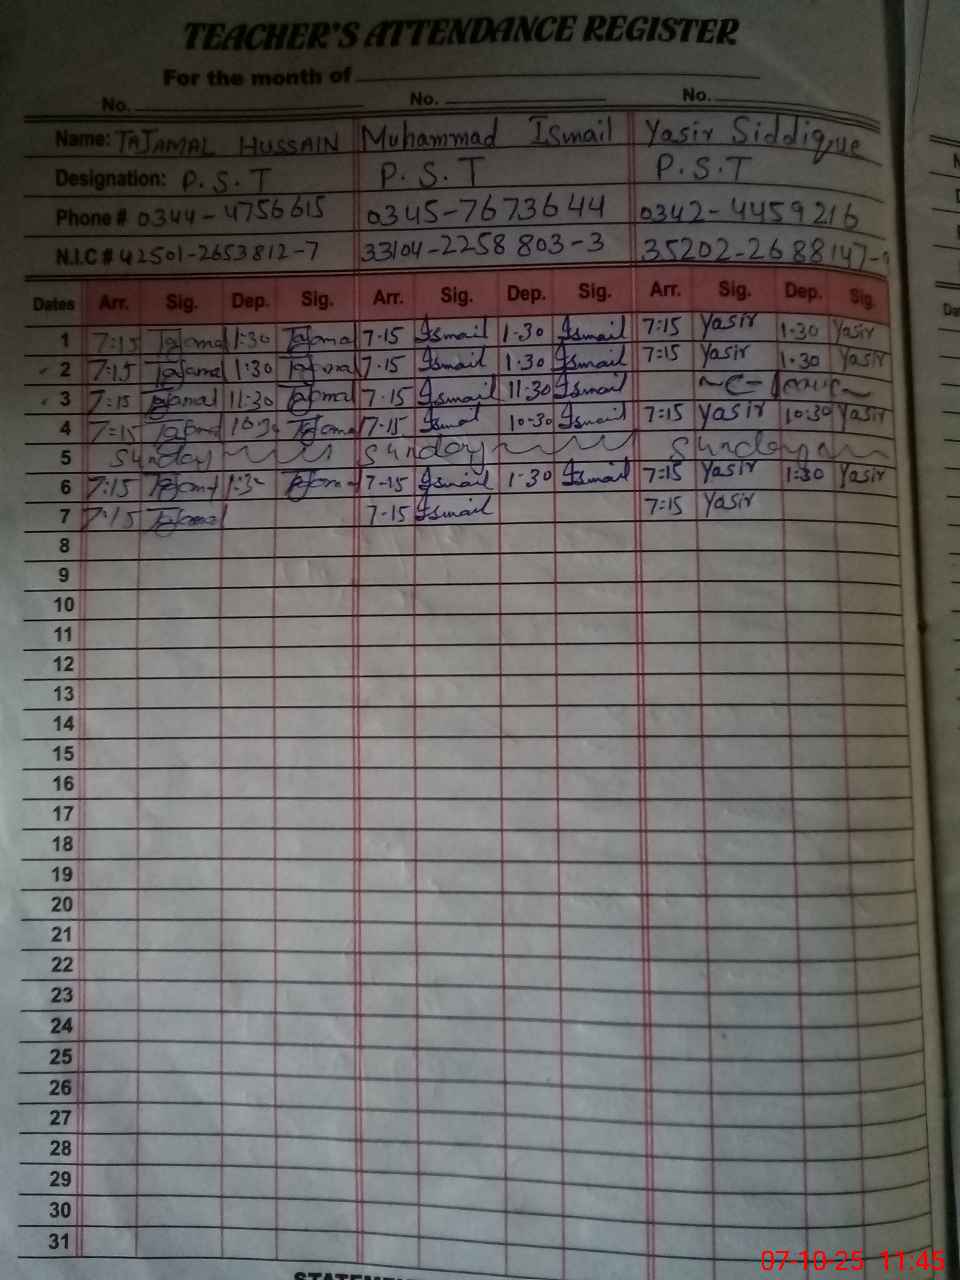 TEACHER'S ATTENDANCE REGISTER
For the month of
No. No. No.
Name: TAJAMAL HUSSAIN Muhammad Ismail Yasir Siddique
Designation: P.S.T P.S.T P.S.T
Phone # 0344-4756615 0345-7673644 0342-4459216
N.I.C # 42501-2653812-7 33104-2258803-3 35202-2688147-
Dates Arr. Sig. Dep. Sig. Arr. Sig. Dep. Sig. Arr. Sig. Dep. Sig.
1 7:15 Tajamal 1:30 Tajamal 7-15 Ismail 1-30 Ismail 7:15 Yasir 1-30 Yasir
2 7:15 Tajamal 1:30 Tajamal 7-15 Ismail 1.30 Ismail 7:15 Yasir 1-30 Yasir
3 7:15 Tajamal 11:30 Tajamal 7-15 Ismail 11:30 Ismail
4 7:15 Tajamal 10:30 Tajamal 7-15 Ismail 10-30 Ismail 7:15 Yasir 10:30 Yasir
5 Sunday Sunday Sunday
6 7:15 Tajamal 1:30 Tajamal 7-15 Ismail 1-30 Ismail 7:15 Yasir 1:30 Yasir
7 7:15 Tajamal 7-15 Ismail 7:15 Yasir
8
9
10
11
12
13
14
15
16
17
18
19
20
21
22
23
24
25
26
27
28
29
30
31
07-10-25 11:45